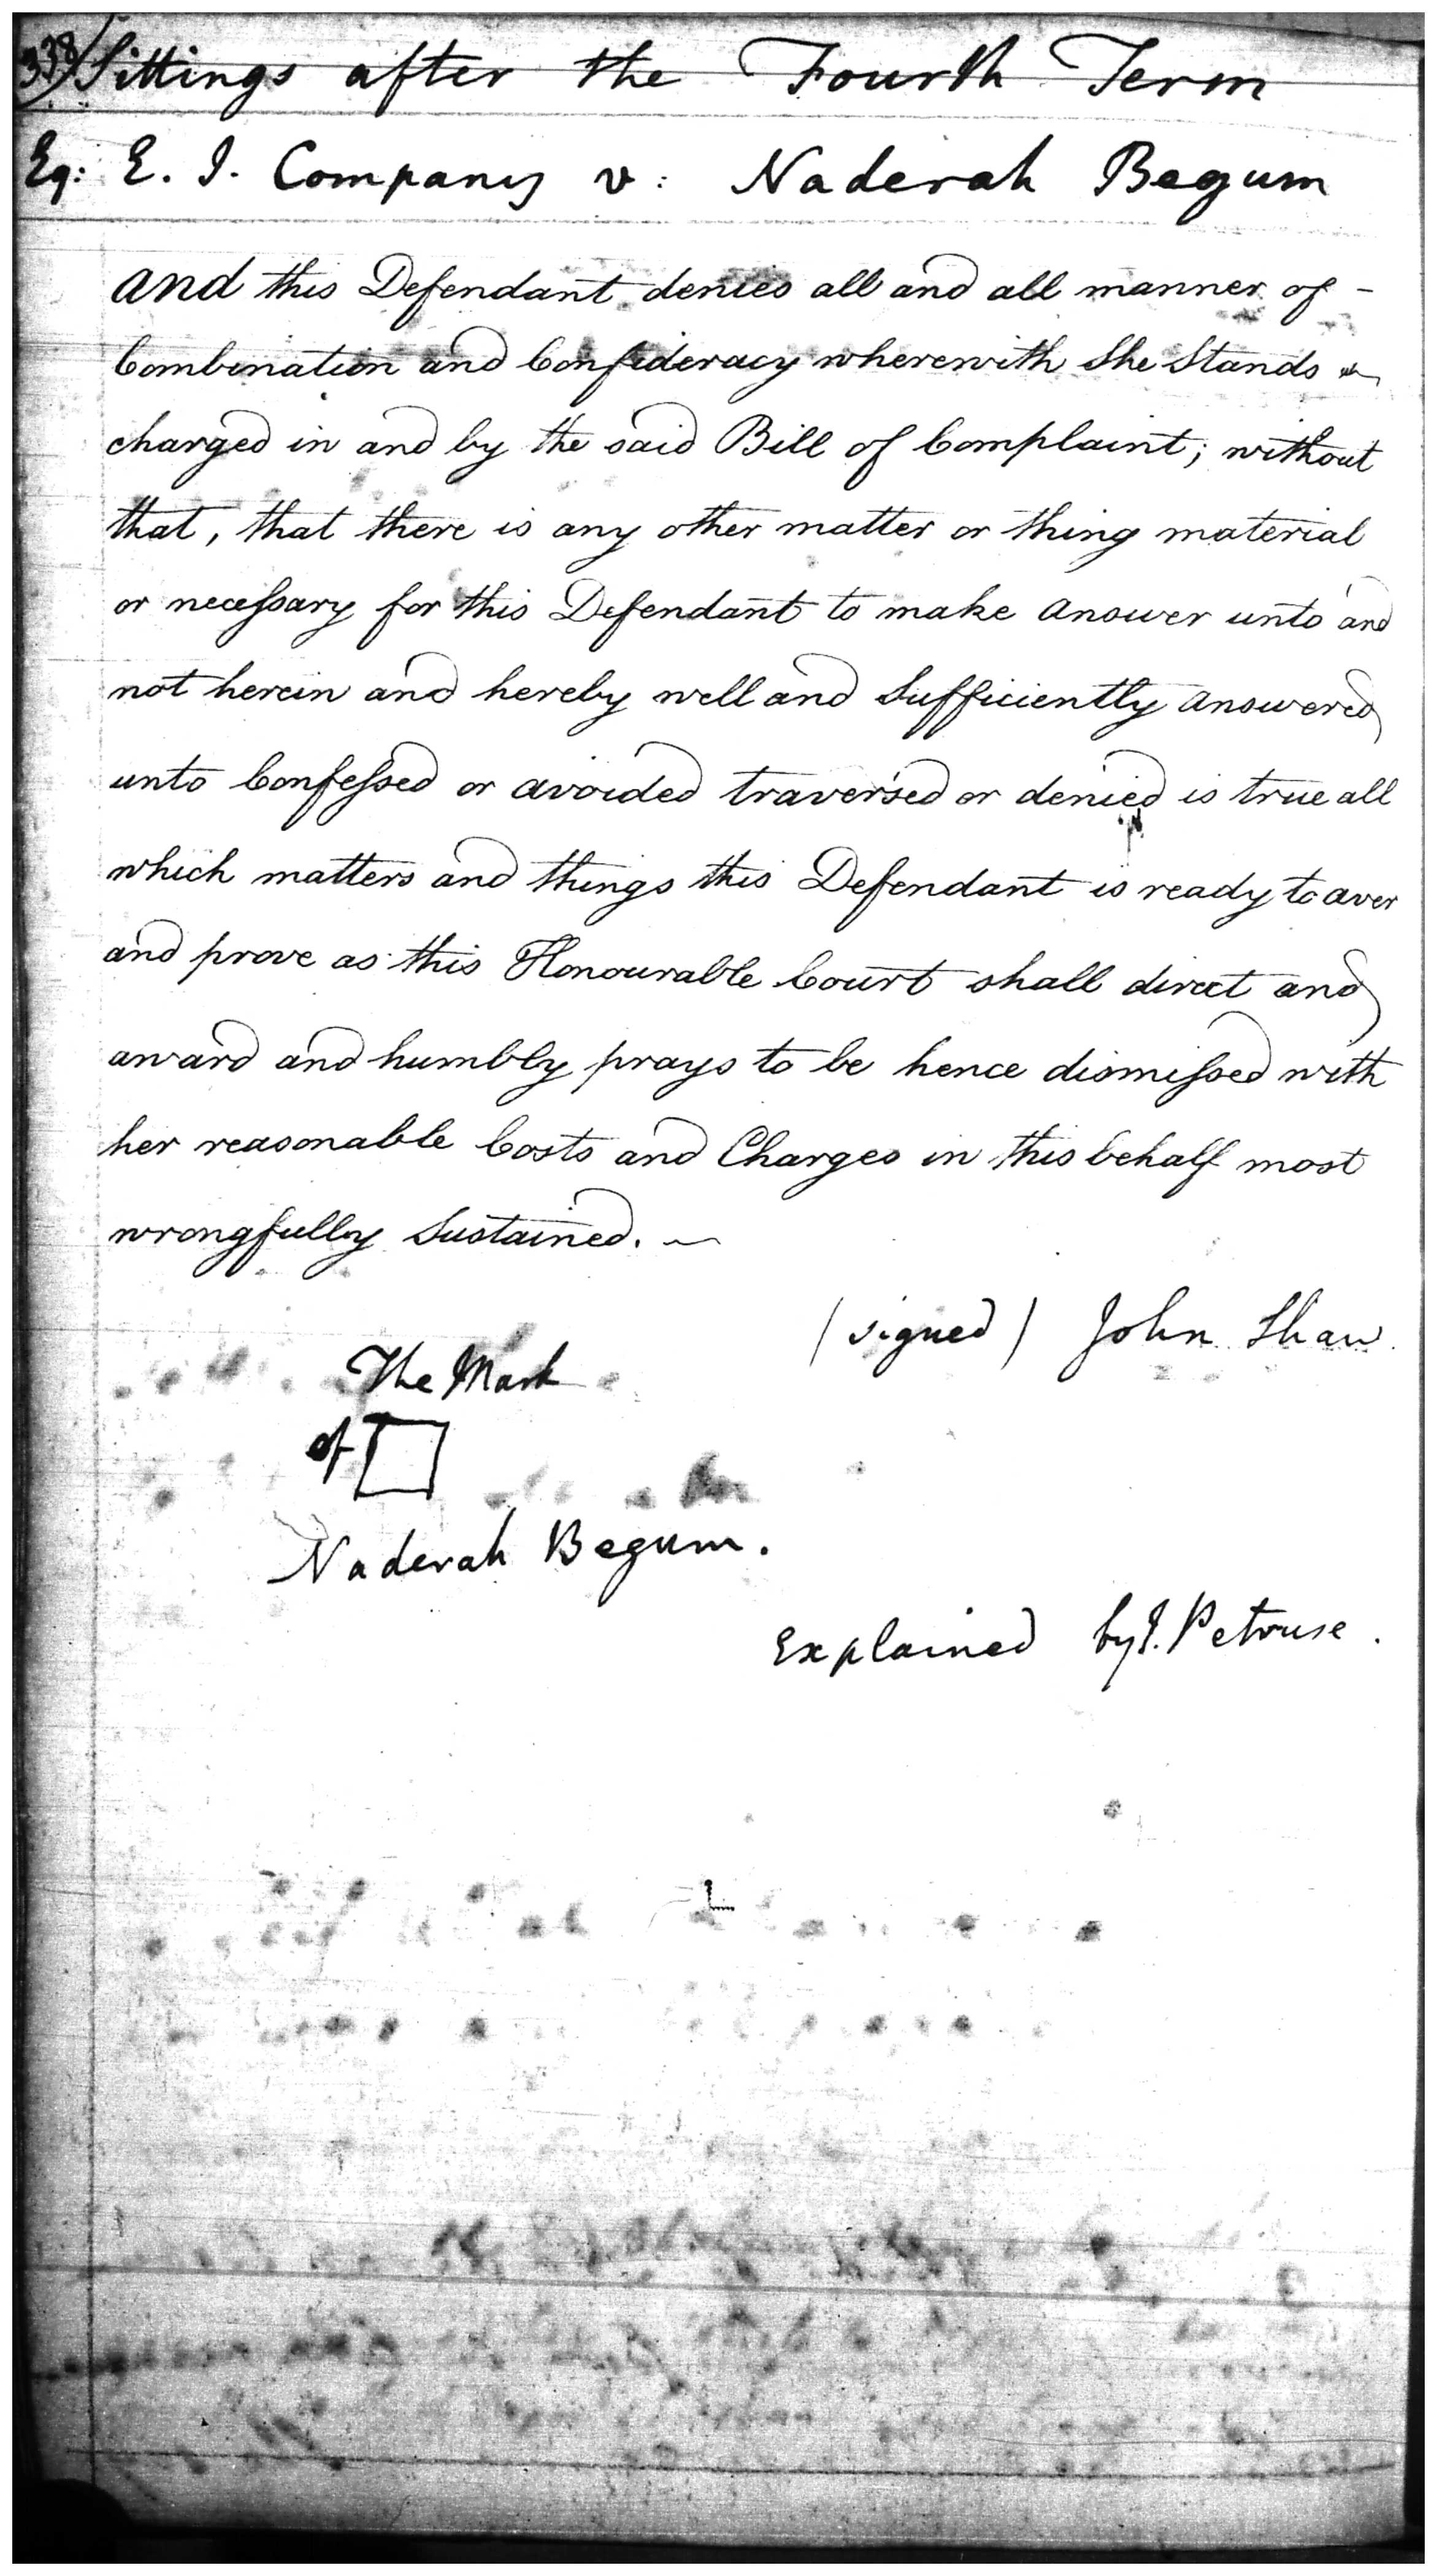 338) Sittings after the Fourth Term
Eq: E. I. Company v: Naderah Begum
and this Defendant denies all and all manner of -
Combination and Confideracy wherewith She Stands
charged in and by the said Bill of Complaint; without
that, that there is any other matter or thing material
or necessary for this Defendant to make answer unto and
not herein and hereby well and Sufficiently answered
unto Confessed or avoided traversed or denied is true all
which matters and things this Defendant is ready to aver
and prove as this Honourable Court shall direct and
award and humbly prays to be hence dismissed with
her reasonable Costs and Charges in this behalf most
wrongfully Sustained. ~
(signed) John Shaw
The Mark
of
Naderah Begum.
Explained by J. Petruse.